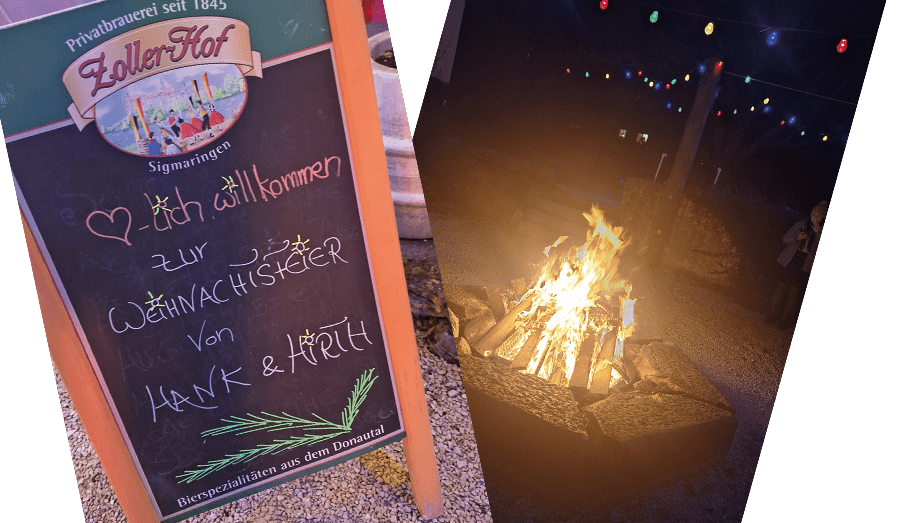 Privatbrauerei seit 1845
Zoller-Hof
Sigmaringen
♡-lich willkommen
zur
WEIHNACHTSFEIER
von
HANK & HIRTH
Bierspezialitäten aus dem Donautal